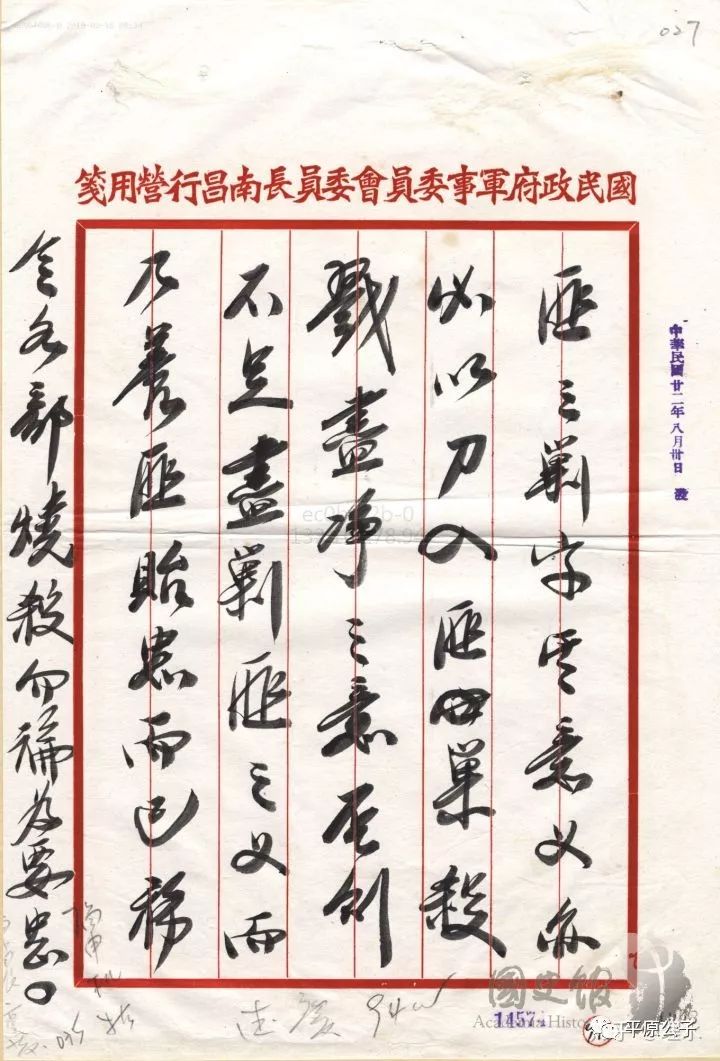 027
國民政府軍事委員會委員長南昌行營用箋
中華民國廿二年八月卅日 發
匪之剿字其意义亦
必以刀入匪巢殺
戮盡净之意否則
不足盡剿匪之义而
乃養匪貽患而已務
令各部燒殺勿論為要
國史館
Academia Historica
1457
平原公子